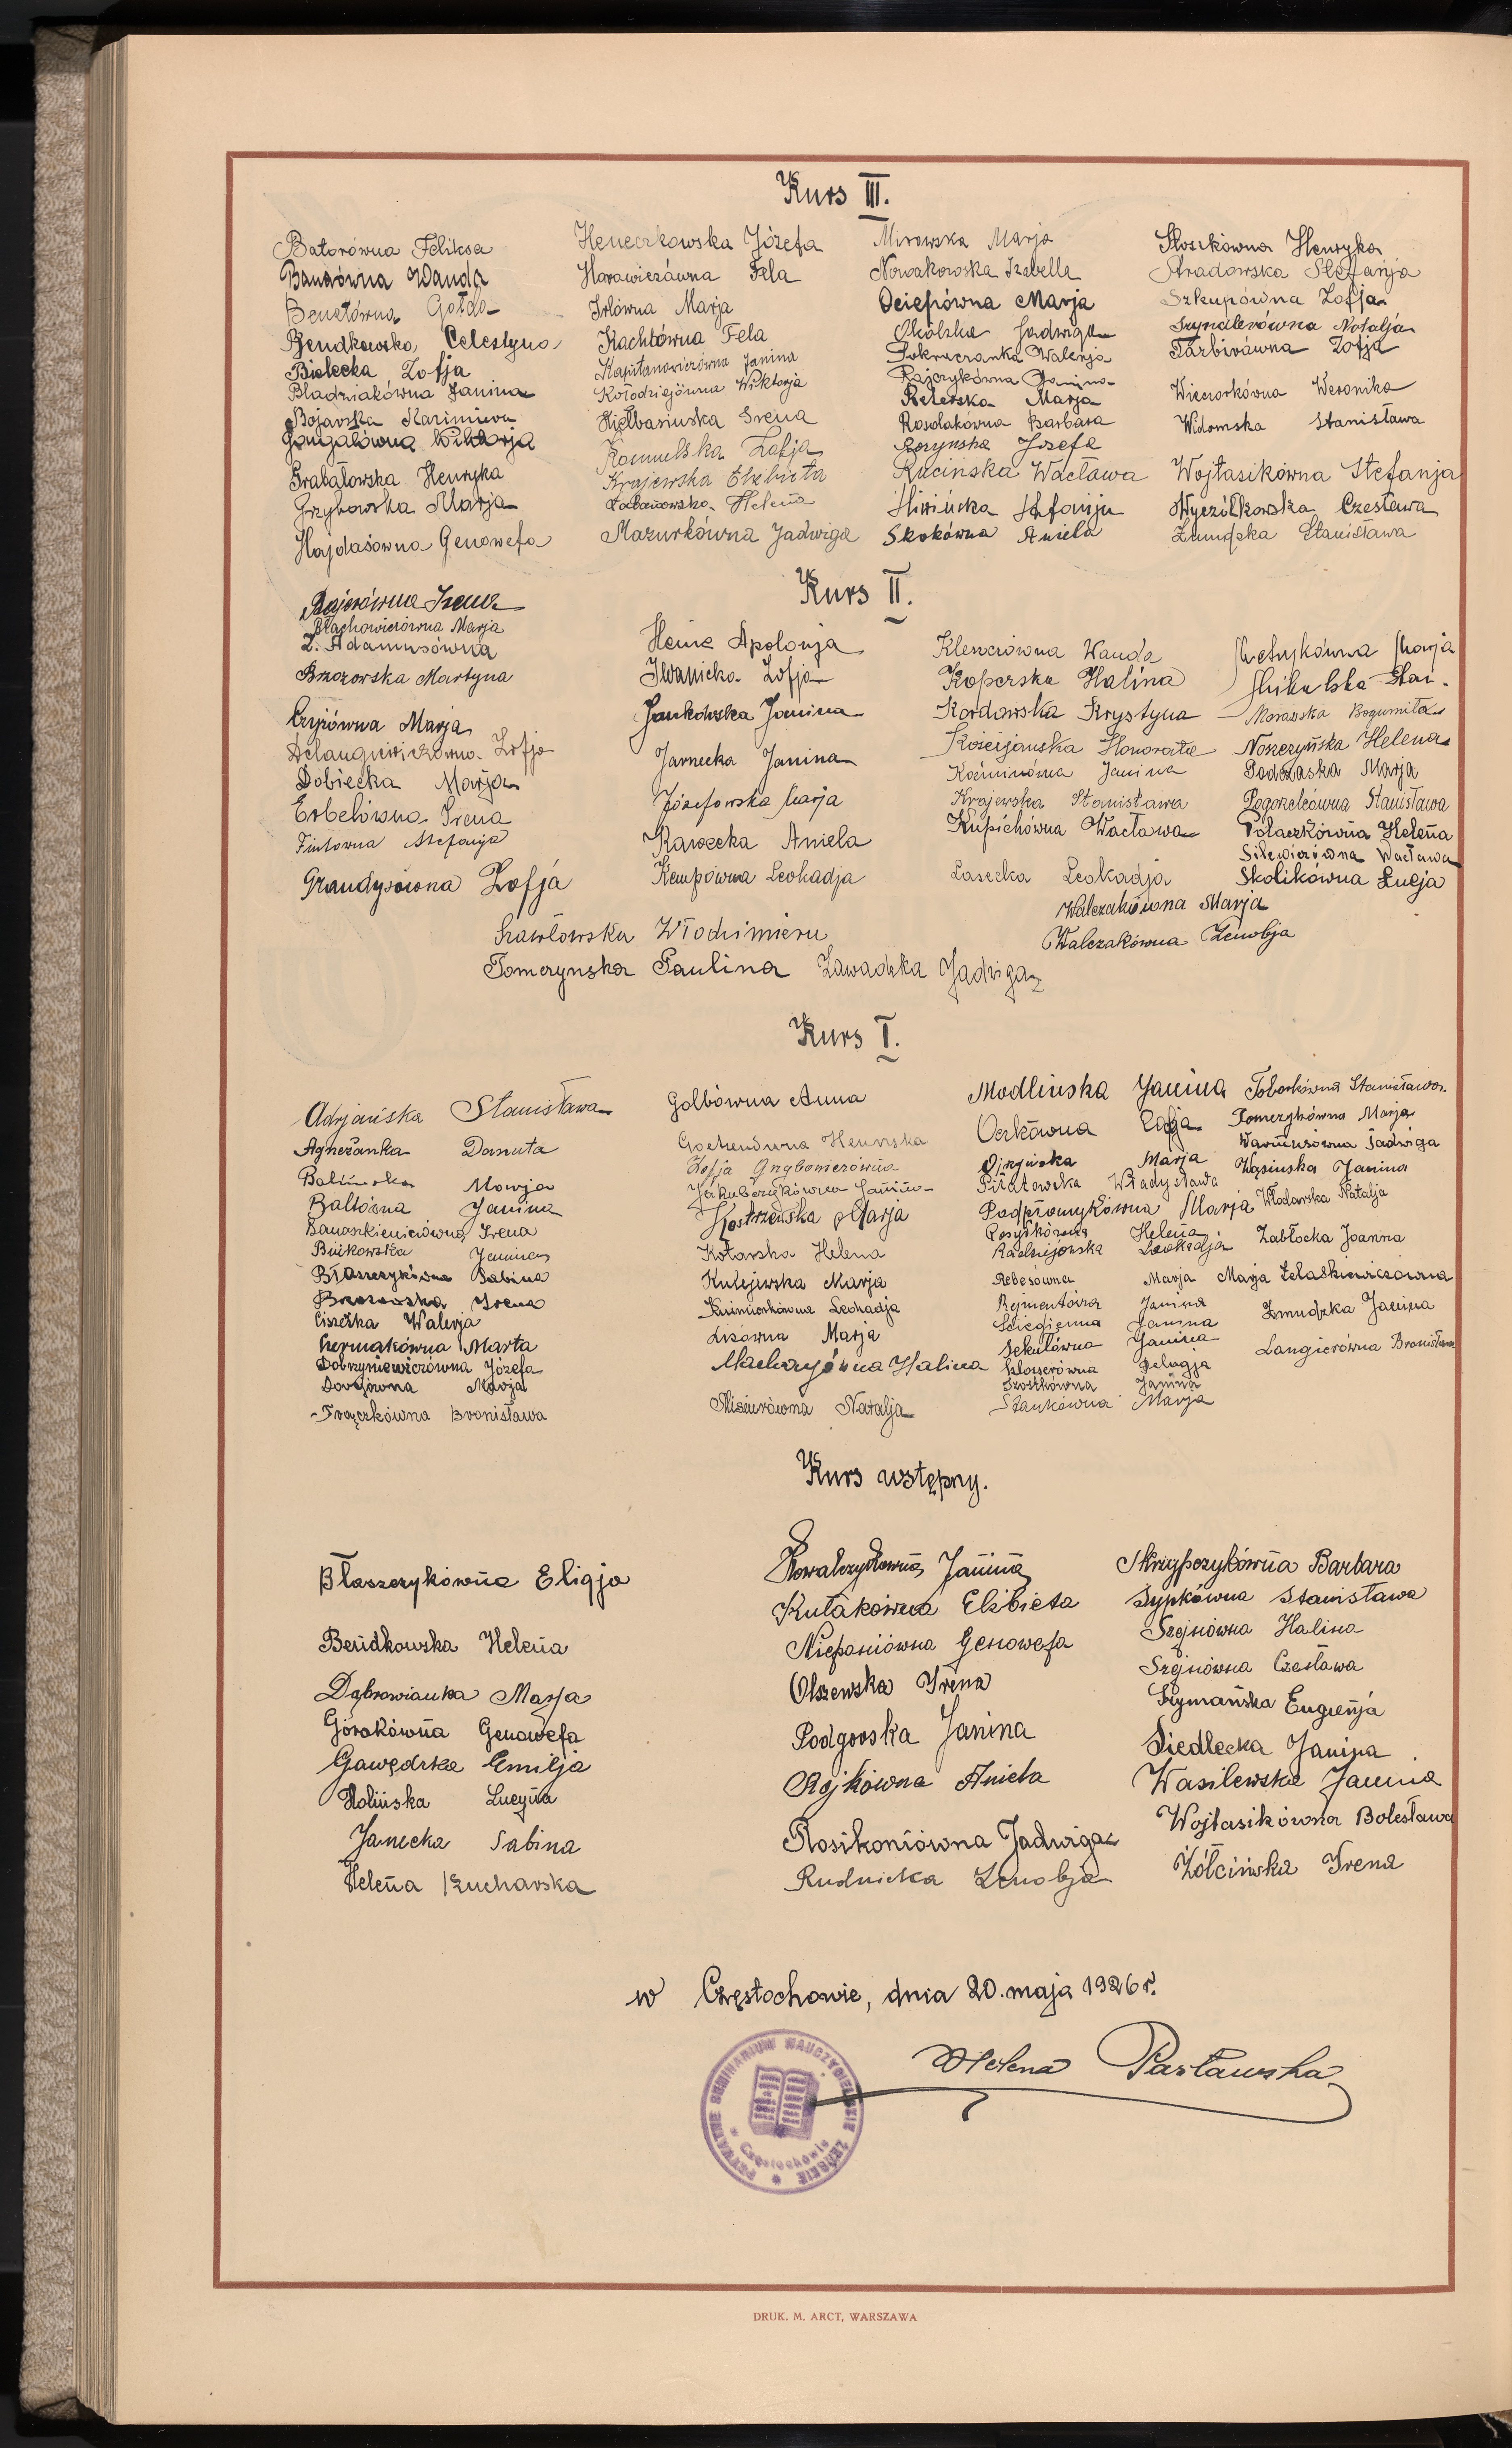 Kurs III.
Batorówna Feliksa
Banasówna Wanda
Benetówna Gołda
Bendkowska Celestyna
Bielecka Zofja
Bladziakówna Janina
Bojarska Kazimiera
Gangalówna Wiktorja
Grabałowska Henryka
Grzybowska Marja
Hajdasówna Genowefa
Heneczkowska Józefa
Horowiczówna Fela
Irlówna Marja
Kachlówna Fela
Kapitanowiczówna Janina
Kołodziejówna Wiktorja
Kiełbasińska Irena
Kamulska Zofja
Krajewska Elżbieta
Łabanowska Helena
Mazurkówna Jadwiga
Mirowska Marja
Nowakowska Izabella
Ociepówna Marja
Okólska Jadwiga
Pokraczanka Walerja
Rajczykówna Janina
Reterska Marja
Rosolakówna Barbara
Rozynska Józefa
Rucińska Wacława
Stefanja
Skokówna Aniela
Stoszkówna Henryka
Stradowska Stefanja
Szkupówna Zofja
Szynclerówna Natalja
Tarbirówna Zofja
Wieczorkówna Weronika
Widomska Stanisława
Wojtasikówna Stefanja
Wyczółkowska Czesława
Żmudzka Stanisława
Kurs II.
Bajerówna Irena
Błachowiczówna Marja
Z. Adamusówna
Brzozowska Martyna
Czyżówna Marja
Zofja
Dobiecka Marja
Erbelówna Irena
Fintowna Stefanja
Grandysówna Zofja
Heine Apolonja
Iwanicka Zofja
Jankowska Janina
Jarnecka Janina
Józefowska Marja
Kawecka Aniela
Kempówna Leokadja
Kleszczówna Wanda
Koperska Halina
Kordowska Krystyna
Kościjańska Honorata
Koźminówna Janina
Krajewska Stanisława
Kupichówna Wacława
Lasecka Leokadja
Metrykówna Marja
Mikulska Stan.
Morawska Bogumiła
Noszczyńska Helena
Podczaska Marja
Pogorzelcówna Stanisława
Polaczkówna Helena
Silewiczówna Wacława
Skolikówna Łucja
Walczakówna Marja
Walczakówna Zenobja
Szawłowska Włodzimiera
Pomerynska Paulina Zawadzka Jadwiga
Kurs I.
Adrjańska Stanisława
Agneżanka Danuta
Balińska Marja
Baltówna Janina
Banaszkiewiczówna Irena
Bińkowska Janina
Błaszczykówna Sabina
Brzozowska Irena
Ciszelka Walerja
Czermakówna Marta
Dobrzyniewiczówna Józefa
Marja
Frączkówna Bronisława
Golbówna Anna
Gochendurna Henryka
Zofja Grybowiczówna
Jakubczykówna Janina
Kostrzewska Marja
Kotarska Helena
Kulejewska Marja
Kuśmierkówna Leokadja
Lisówna Marja
Macharzówna Halina
Misiurówna Natalja
Modlińska Janina
Ocrkówna Edzja
Ojrzyńska Marja
Piłatowska Władysława
Podpromykówna Marja
Posyłkówna Helena
Radziejowska Leokadja
Rebesówna Marja
Rejmentówna Janina
Ściegienna Janina
Sekulówna Janina
Szloserówna Pelagja
Szostkówna Janina
Stankówna Marja
Toborkówna Stanisława
Tomczykówna Marja
Warmusówna Jadwiga
Wąsinska Janina
Włodarska Natalja
Zabłocka Joanna
Marja Żelaśkiewiczówna
Żmudzka Janina
Langierówna Bronisława
Kurs wstępny.
Błaszczykówna Eligja
Bendkowska Helena
Dąbrowianka Marja
Górakówna Genowefa
Gawędzka Emilja
Holińska Lucyna
Janecka Sabina
Helena Kucharska
Kowalczykówna Janina
Kułakówna Elżbieta
Niepsuiówna Genowefa
Olszewska Irena
Podgórska Janina
Rojkówna Aniela
Rosikoniówna Jadwiga
Rudnicka Zenobja
Skrzypczykówna Barbara
Sypkówna Stanisława
Szejnówna Halina
Szejnówna Czesława
Szymańska Eugenja
Siedlecka Janina
Wasilewska Janina
Wojtasikówna Bolesława
Żółcińska Irena
w Częstochowie, dnia 20. maja 1926 r.
Helena Pasławska
PRYWATNE SEMINARIUM NAUCZYCIELSKIE ŻEŃSKIE
w Częstochowie
DRUK. M. ARCT, WARSZAWA